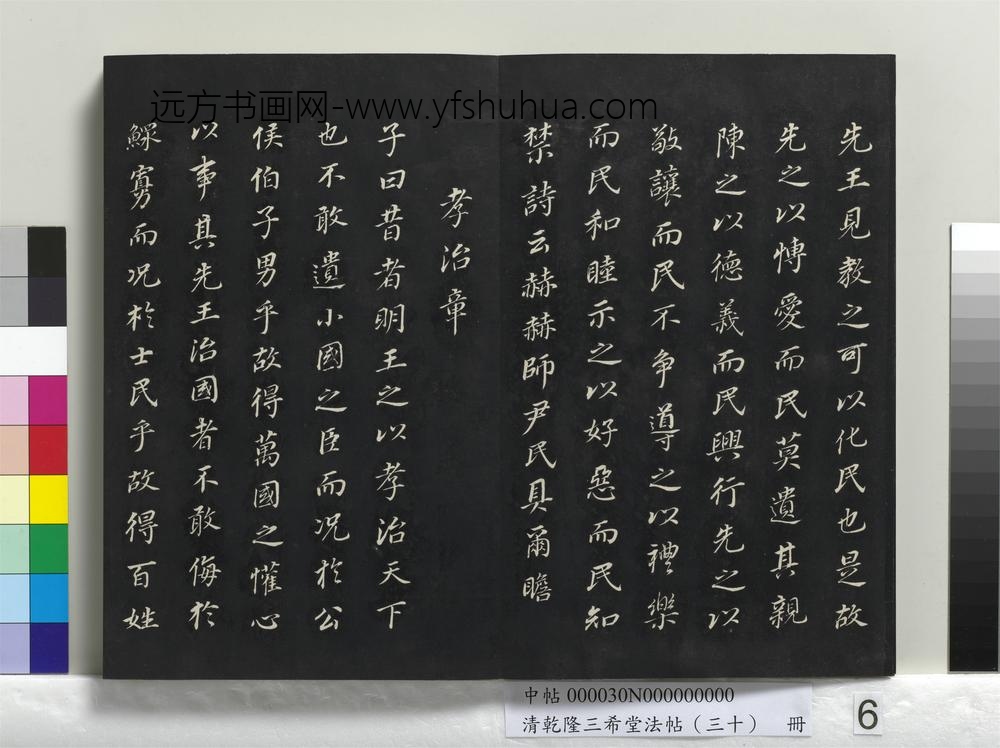 远方书画网-www.yfshuhua.com
先王見教之可以化民也是故
先之以博愛而民莫遺其親
陳之以德義而民興行先之以
敬讓而民不争導之以禮樂
而民和睦示之以好惡而民知
禁詩云赫赫師尹民具爾瞻
孝治章
子曰昔者明王之以孝治天下
也不敢遺小國之臣而况於公
侯伯子男乎故得萬國之懽心
以事其先王治國者不敢侮於
鰥寡而况於士民乎故得百姓
中帖 000030N000000000
清乾隆三希堂法帖（三十） 冊
6